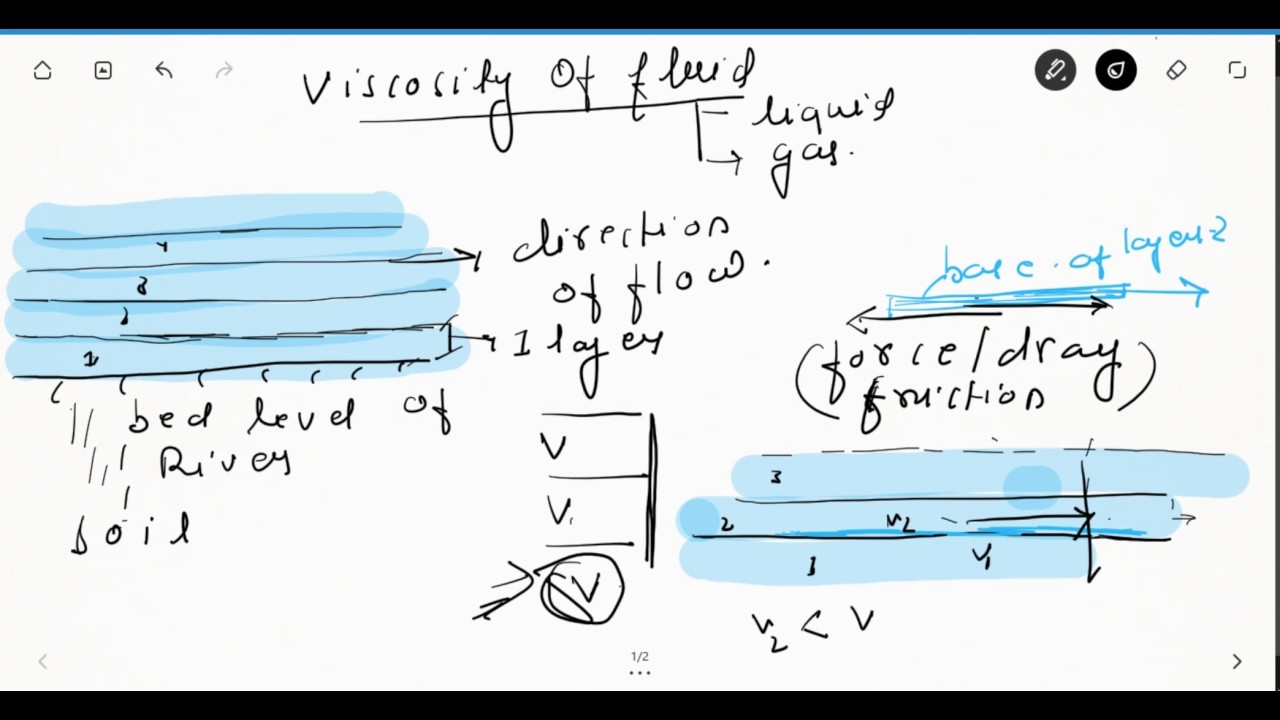 Viscosity Of fluid
liquid
gas.
direction
of flow.
4
3
2
1
1 layer
bed level of
River
Soil
base of layer 2
(force/drag
friction)
V
V1
V
3
2 v2
1 V1
v2 < V
1/2